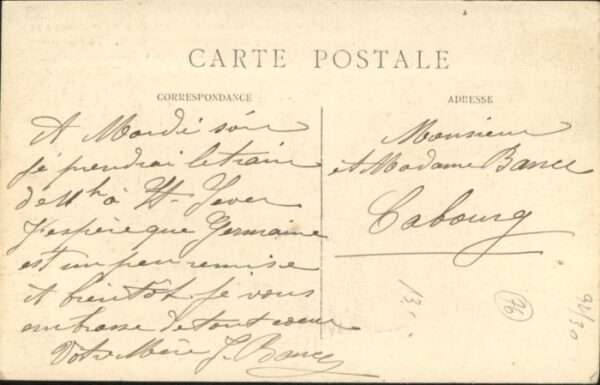 CARTE POSTALE
CORRESPONDANCE
ADRESSE
A Mardi soir
je prendrai le train
de 11h à St. Sever
J'espère que Germaine
est un peu remise
A bientôt. Je vous
embrasse de tout coeur
Votre Mère J. Bance
Monsieur
et Madame Bance
Cabourg
13.
76